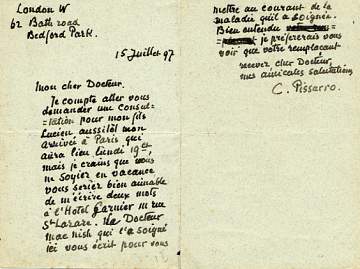 London W
62 Bath road
Bedford Park.
15 Juillet 97
Mon cher Docteur.
Je compte aller vous
demander une consul-
tation pour mon fils
Lucien aussitôt mon
arrivée à Paris qui
aura lieu lundi 19 ct,
mais je crains que vous
ne soyier en vacance
vous seriez bien aimable
de m'écrire deux mots
à l'Hotel Garnier m rue
St Lazare. Le Docteur
mac Nish qui l'a soigné
ici vous écrit pour vous
mettre au courant de la
maladie qu'il a soignée.
Bien entendu
je préfererais vous
voir que votre remplacant
recever cher Docteur
mes amicales salutations
C. Pissarro.